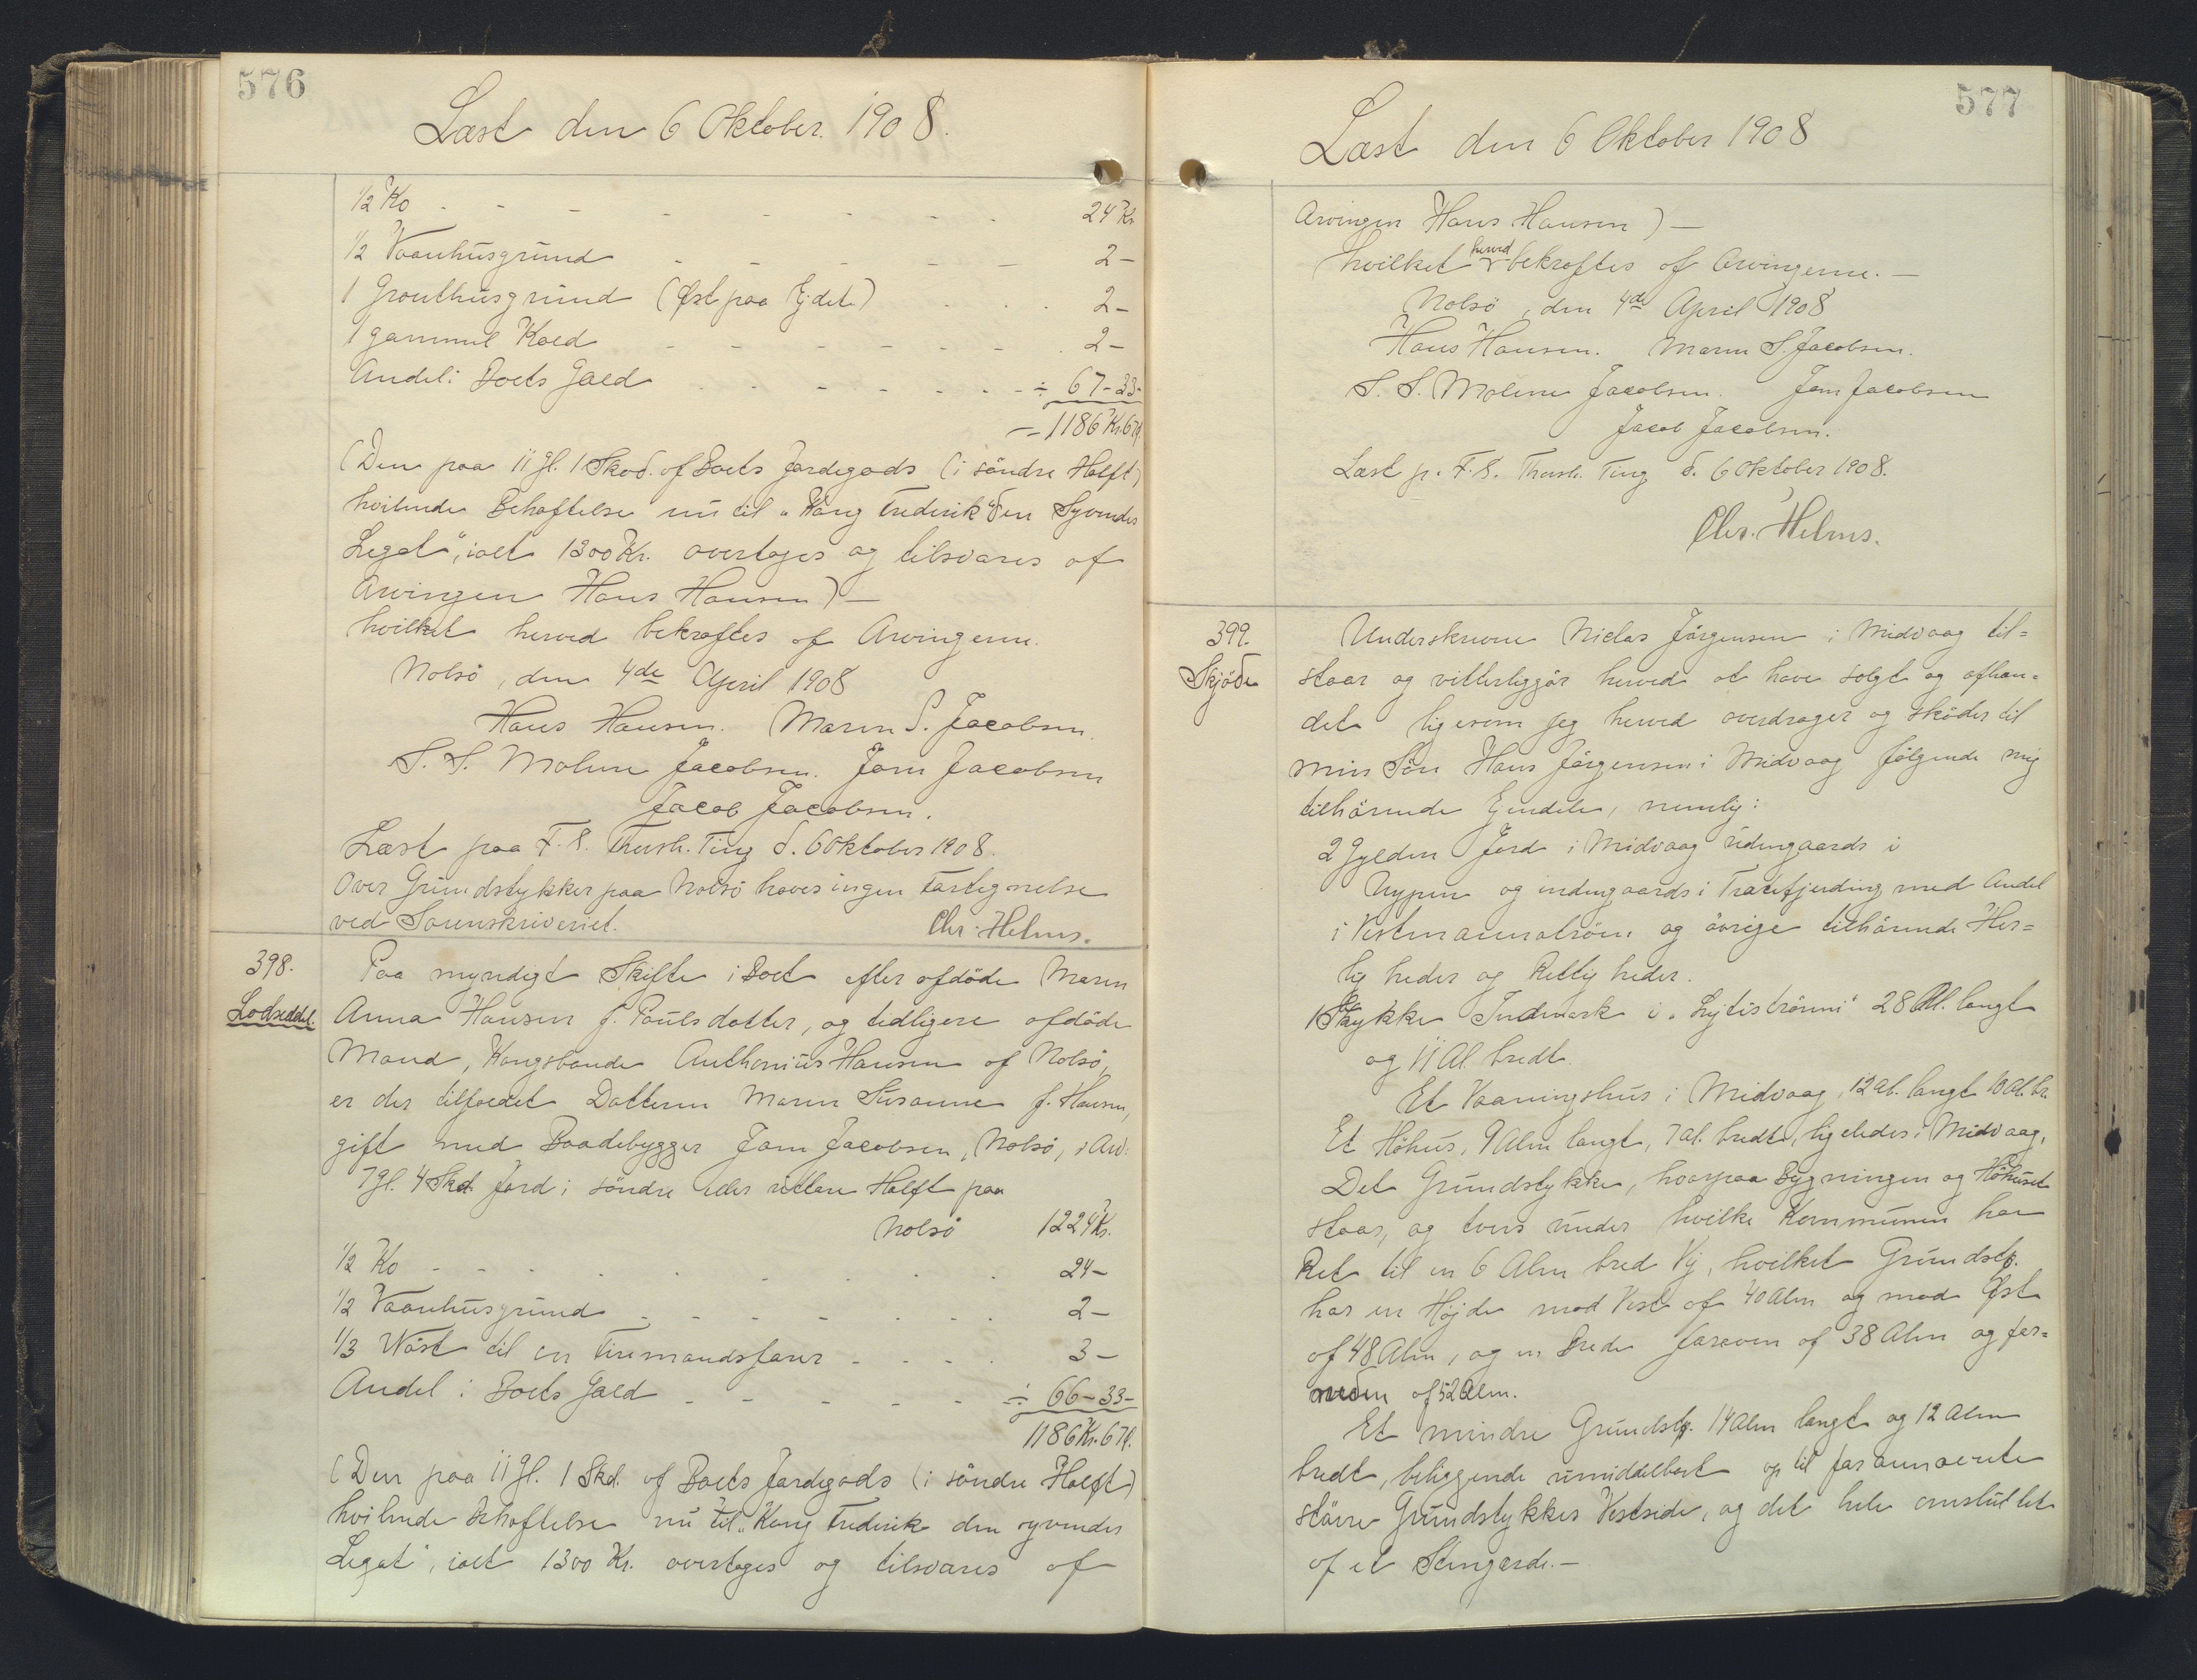 576
Læst den 6 Oktober. 1908.
1/2 Ko - - - - - - - 24 Kr
1/2 Vaanhusgrund - - - - - 2 -
1 Grouthusgrund (Øst paa Ejdet) . . . 2 -
1 gammel Kæld - - - - - - 2 -
Andel i Boets Gæld - - - - - - ÷ 67 - 33 -
= 1186 Kr. 67
(Den paa 11 gl. 1 Skd. af Boets Jordegods (i söndre Halft)
hvilende Behæftelse nu til "Kong Frederik den Syvendes
Legat", ialt 1300 Kr. overtages og tilsvares af
Arvingen Hans Hansen) -
hvilket herved bekræftes af Arvingerne.
Nolsö, den 4de April 1908
Hans Hansen. Maren S. Jacobsen.
S. S. Moline Jacobsen. Joen Jacobsen
Jacob Jacobsen.
Læst paa F. S. Thorsh. Ting d. 6 Oktober 1908.
Over Grundstykker paa Nolsö haves ingen Fortegnelse
ved Sorenskriveriet. Chr. Helms.
398. Paa myndigt Skifte i Boet efter afdöde Maren
Lodseddel. Anna Hansen f. Poulsdatter, og tidligere afdöde
Mand, Kongsbonde Anthonius Hansen af Nolsö,
er der tilfaldet Datteren Maren Susanne f. Hansen,
gift med Baadebygger Joen Jacobsen, Nolsö, i Arv:
7 gl. 4 Skd. Jord i söndre eller Halft paa
Nolsö 1224 Kr.
1/2 Ko - - - . . . - . . 24 -
1/2 Vaanhusgrund - - - - - . . . 2 -
1/3 Nöst til en Firemandsfarer - . . . 3 -
Andel i Boets Gæld - - - - - ÷ 66 - 33 -
1186 Kr. 67
(Den paa 11 gl. 1 Skd. af Boets Jordegods (i söndre Halft)
hvilende Behæftelse nu til "Kong Frederik den syvendes
Legat", ialt 1300 Kr. overtages og tilsvares af
577
Læst den 6 Oktober 1908
Arvingen Hans Hansen) -
hvilket herved bekræftes af Arvingerne. -
Nolsö, den 4de April 1908
Hans Hansen. Maren S. Jacobsen.
S. S. Moline Jacobsen. Joen Jacobsen
Jacob Jacobsen.
Læst p. F. S. Thorsh. Ting d. 6 Oktober 1908.
Chr. Helms.
399. Underskrevne Niclas Jörgensen i Midvaag til=
Skjöde staar og vitterliggör herved at have solgt og afhæn=
det ligesom jeg herved overdrager og sköder til
min Sön Hans Jörgensen i Midvaag fölgende mig
tilhörende Ejendele, nemlig:
2 Gylden Jord i Midvaag udengaards i
Ryggen og indengaards i Fjerding med Andel
i Vestmannatröen og övrige tilhörende Her=
ligheder og Rettigheder.
1 Stykke Indmark i 28 Al. langt
og 11 Al. bredt.
Et Vaaningshus i Midvaag, 12 Al. langt 10 Al. br.
Et Höhus, 9 Alen langt, 7 Al. bredt, ligeledes i Midvaag,
Det Grundstykke, hvorpaa Bygningen og Höhuset
staar, og tvers under hvilke Kommunen har
Ret til en 6 Alen bred Vej, hvilket Grundst.
har en Højde mod Vest af 40 Alen og mod Øst
af 48 Alen, og en Brede foroven af 38 Alen og for=
neden af 52 Alen.
Et mindre Grundst. 14 Alen langt og 12 Alen
bredt, beliggende umiddelbart op til forannævnte
större Grundstykkes Vestside, og det hele omsluttet
af et Stengærde. -